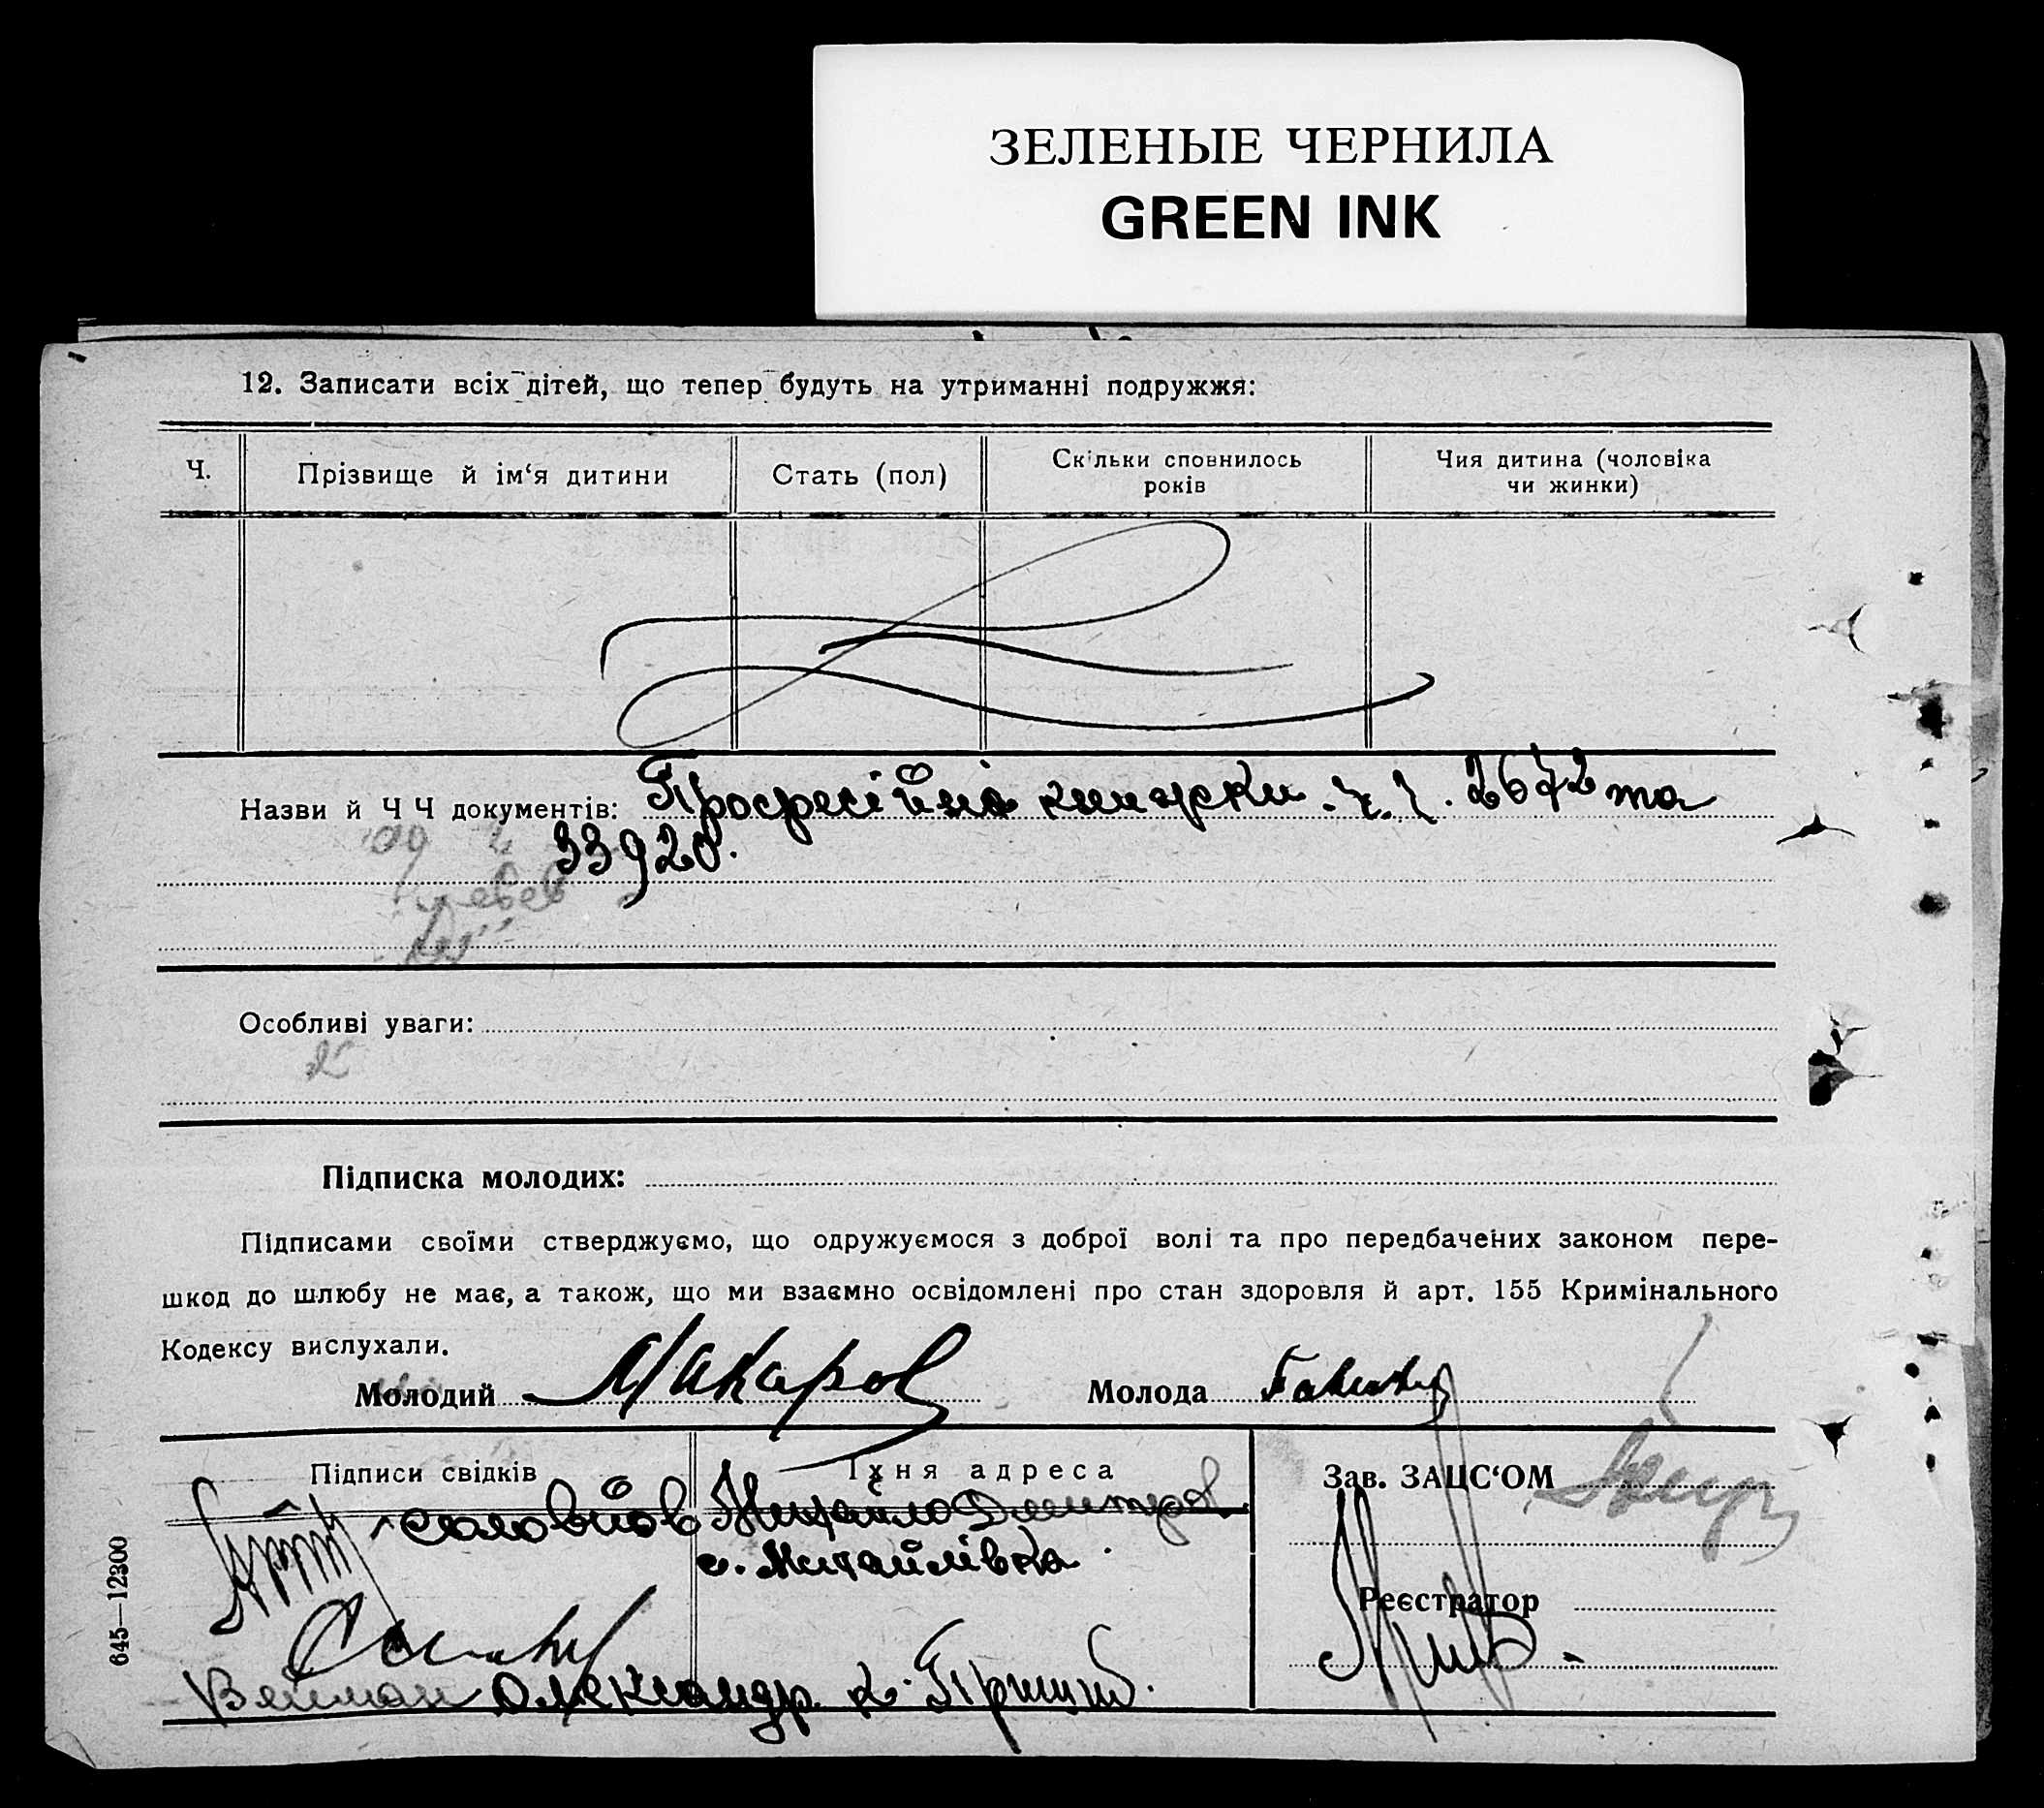 ЗЕЛЕНЫЕ ЧЕРНИЛА
GREEN INK
12. Записати всіх дітей, що тепер будуть на утриманні подружжя:
Ч. Прізвище й ім‘я дитини Стать (пол) Скільки сповнилось років Чия дитина (чоловіка чи жинки)
Назви й Ч Ч документів: Професійна книжки ч.ч. 2672 та
33920.
Особливі уваги:
Підписка молодих:
Підписами своїми стверджуємо, що одружуємося з доброї волі та про передбачених законом пере-
шкод до шлюбу не має, а також, що ми взаємно освідомлені про стан здоровля й арт. 155 Кримінального
Кодексу вислухали.
Молодий Макаров Молода
Підписи свідків Їхня адреса Зав. ЗАЦС‘ОМ
Соловйов Михайло Дмитров
с. Михайлівка
Реєстратор
Вейман Олександр
645—12300